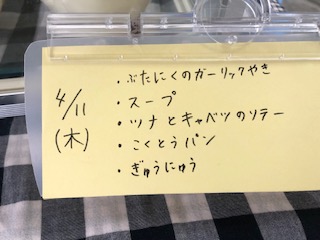 4/11
(木)
・ぶたにくのガーリックやき
・スープ
・ツナとキャベツのソテー
・こくとうパン
・ぎゅうにゅう